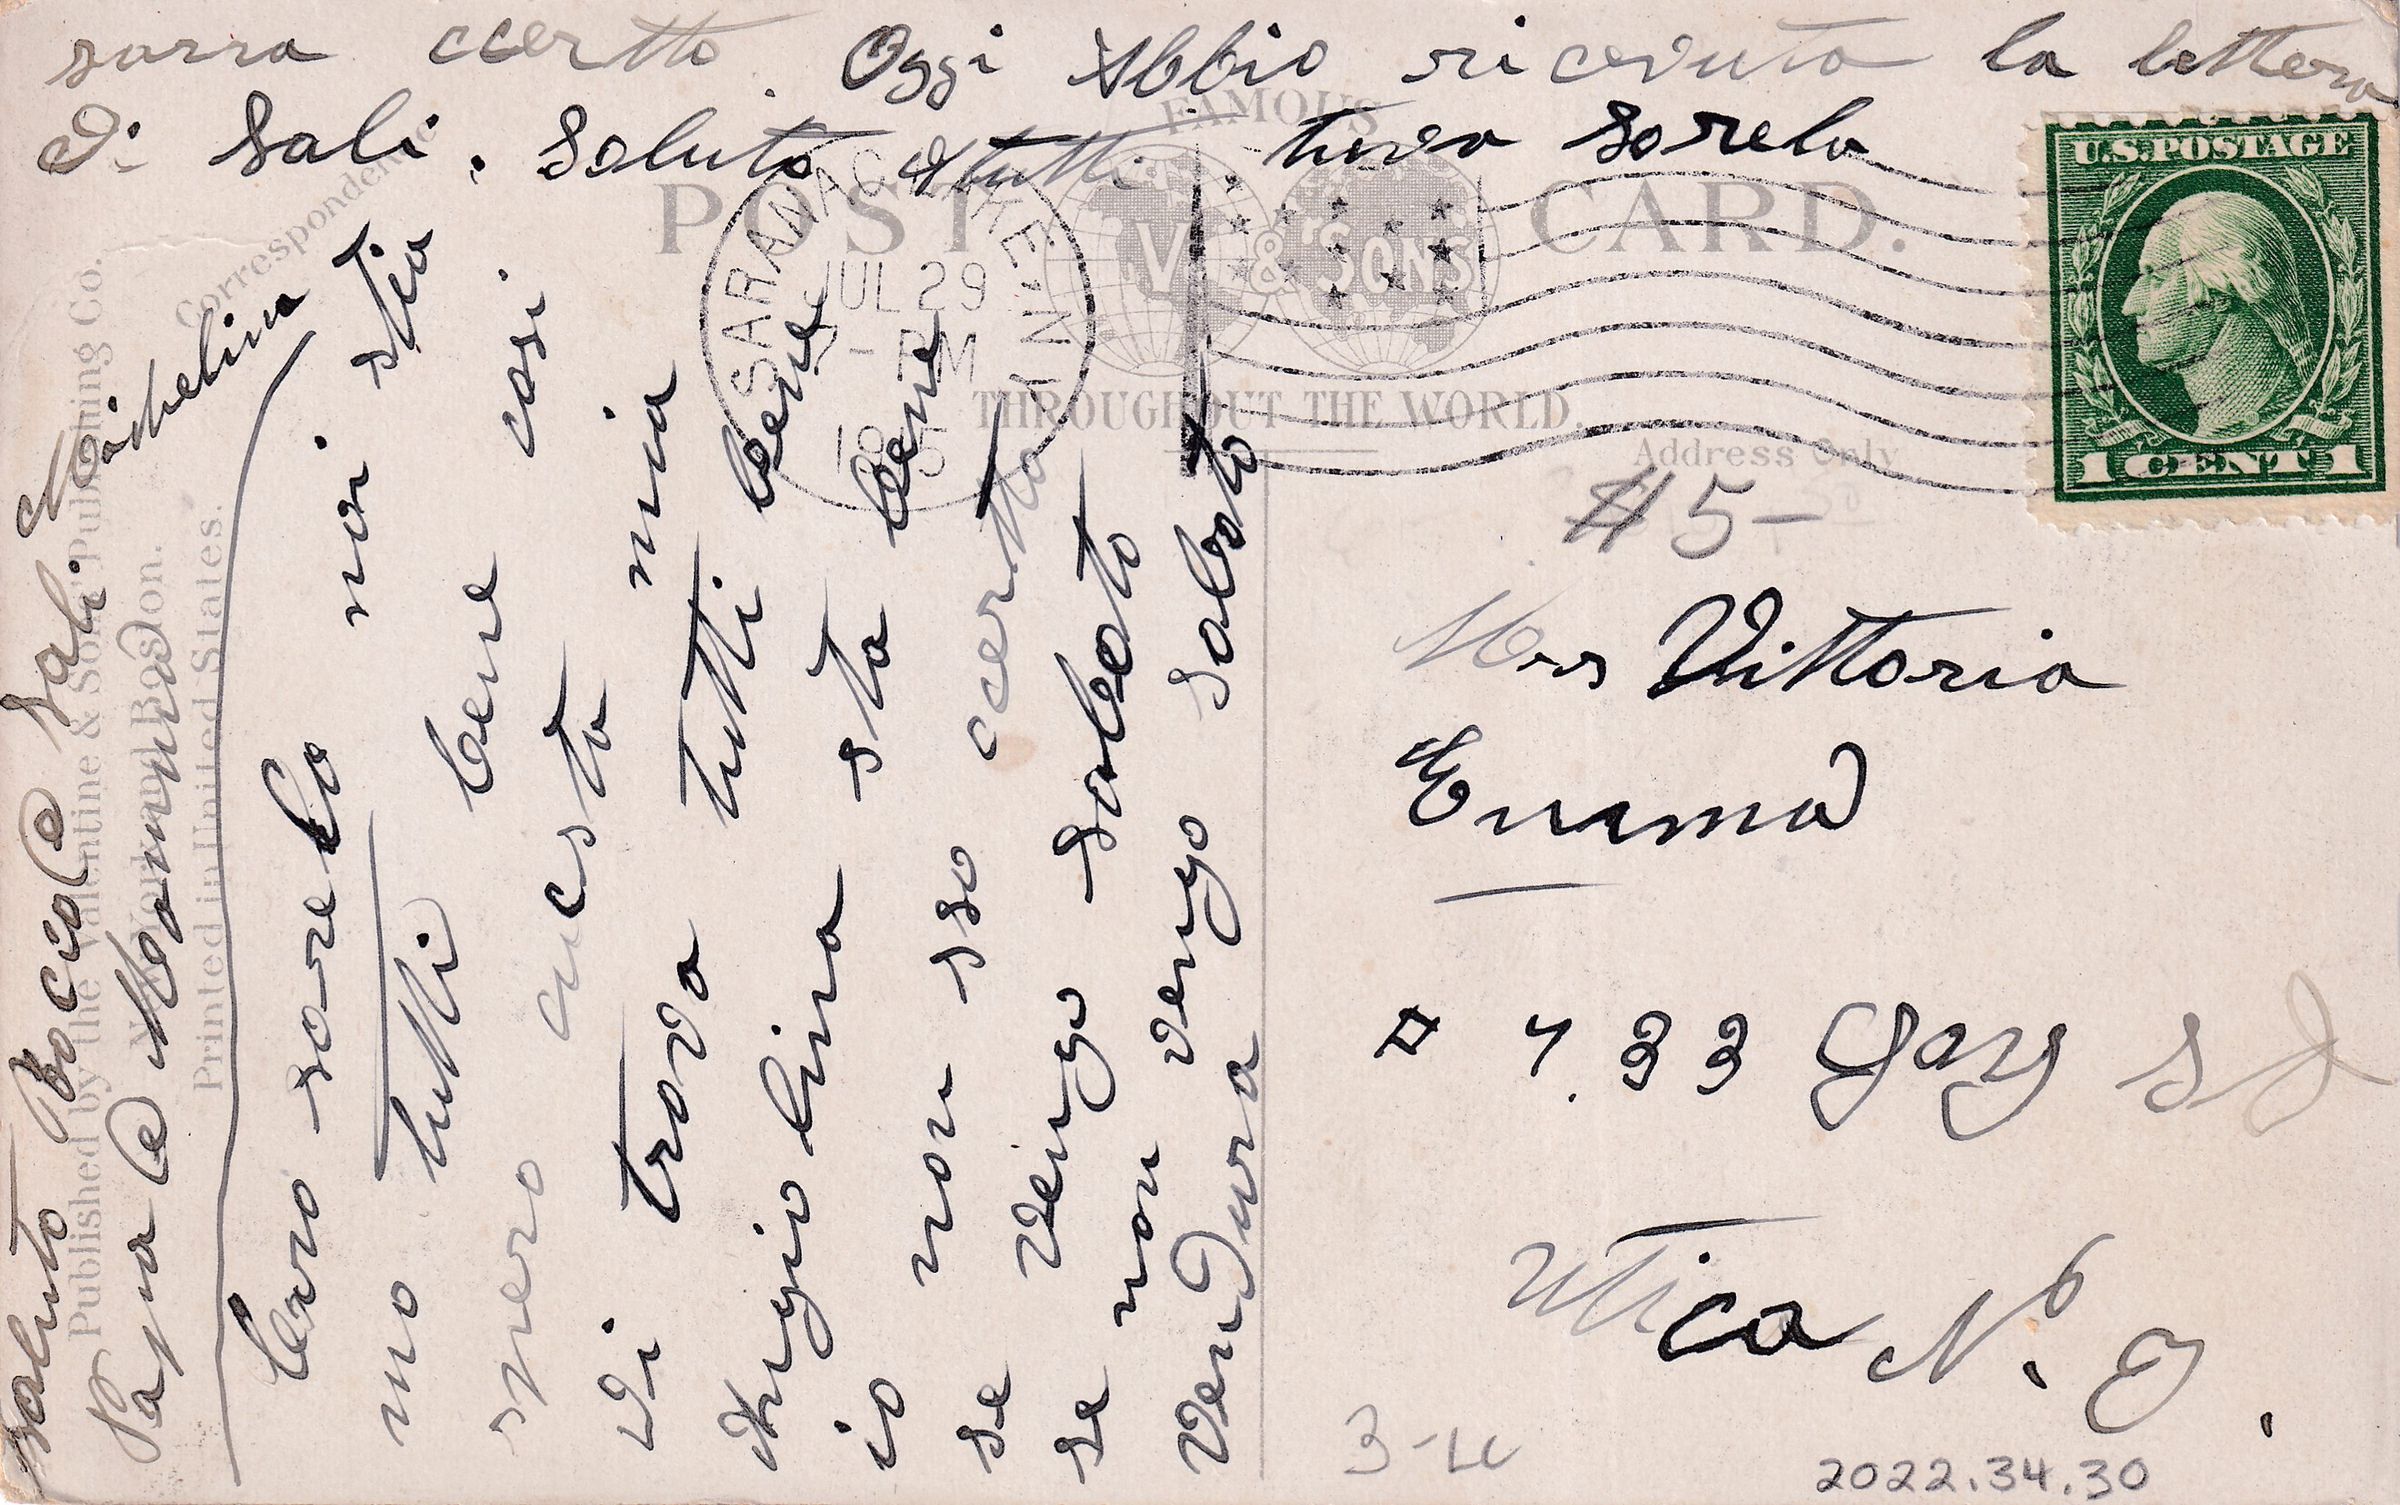 Caro sorelo noi stia
mo tutti bene cosi
spero questa mia
vi trova tutti bene
Angiolina sta bene
io non so certto
se vengo sabato
se non vengo sabato
Vendura
sarra ccertto. Oggi Abbio riceduto la lettera
di Sali. Saluto a tutti. tuva sorela
Michelina
saluto Bociale Sali.
Papa e Mamma
Correspondence
POST CARD.
FAMOUS
V & SONS
THROUGHOUT THE WORLD.
Address Only
Published by the Valentine & Sons' Publishing Co.
New York and Boston.
Printed in United States.
SARANAC LAKE N.Y.
JUL 29
-PM
1915
U.S.POSTAGE
1 CENT 1
#5-
Mrs Vittoria
Emma
# 733 Gay St
Utica N. Y.
2022.34.30